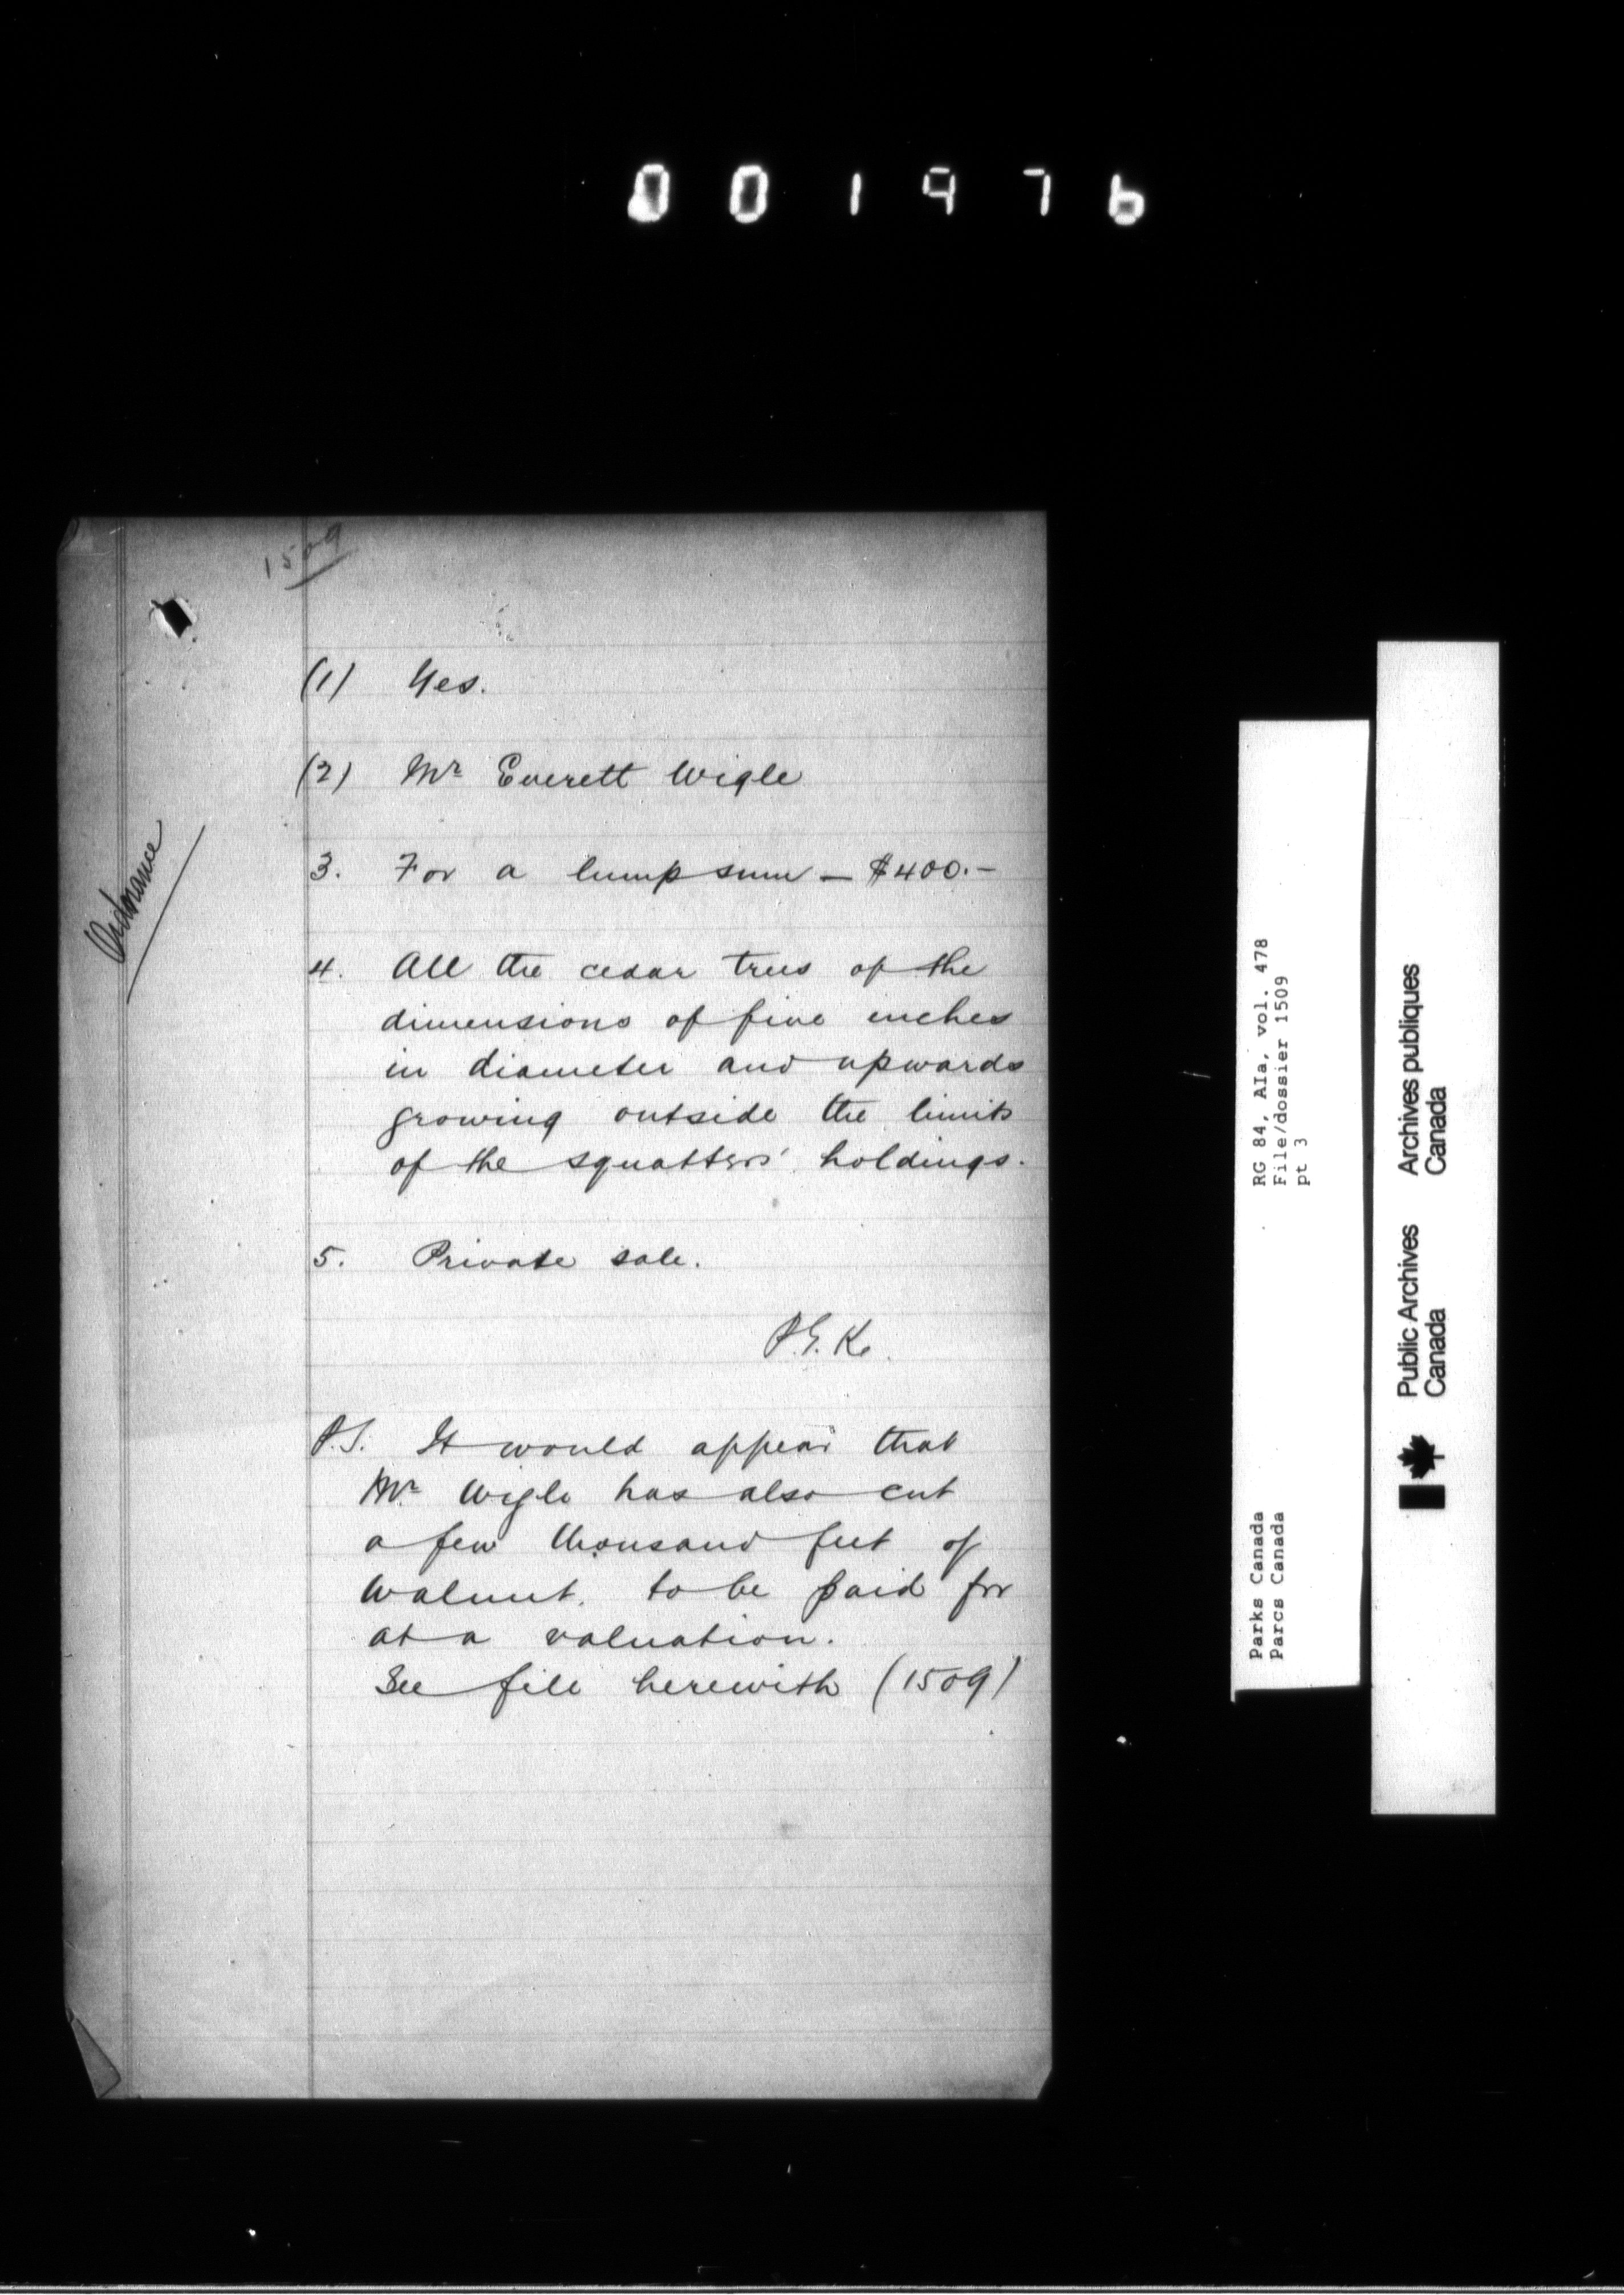 001976
1509
(1) Yes.
(2) Mr Everett Wigle
Ordnance
3. For a lump sum - $400.-
4. All the cedar trees of the
dimensions of five inches
in diameter and upwards
growing outside the limits
of the squatters' holdings.
5. Private sale.
P.G.K.
P.S. It would appear that
Mr Wigle has also cut
a few thousand feet of
Walnut. to be paid for
at a valuation.
See file herewith (1509)
RG 84, AIa, vol. 478
File/dossier 1509
pt 3
Parks Canada
Parcs Canada
Public Archives Archives publiques
Canada Canada